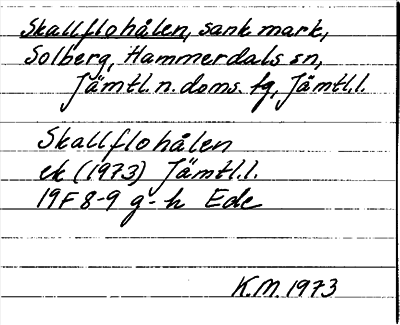 Skallflohålen, sank mark,
Solberg, Hammerdals sn,
Jämtl. n. doms. fg, Jämtl. l.
Skallflohålen
ek (1973) Jämtl. l.
19F 8-9 g-h Ede
K.M. 1973